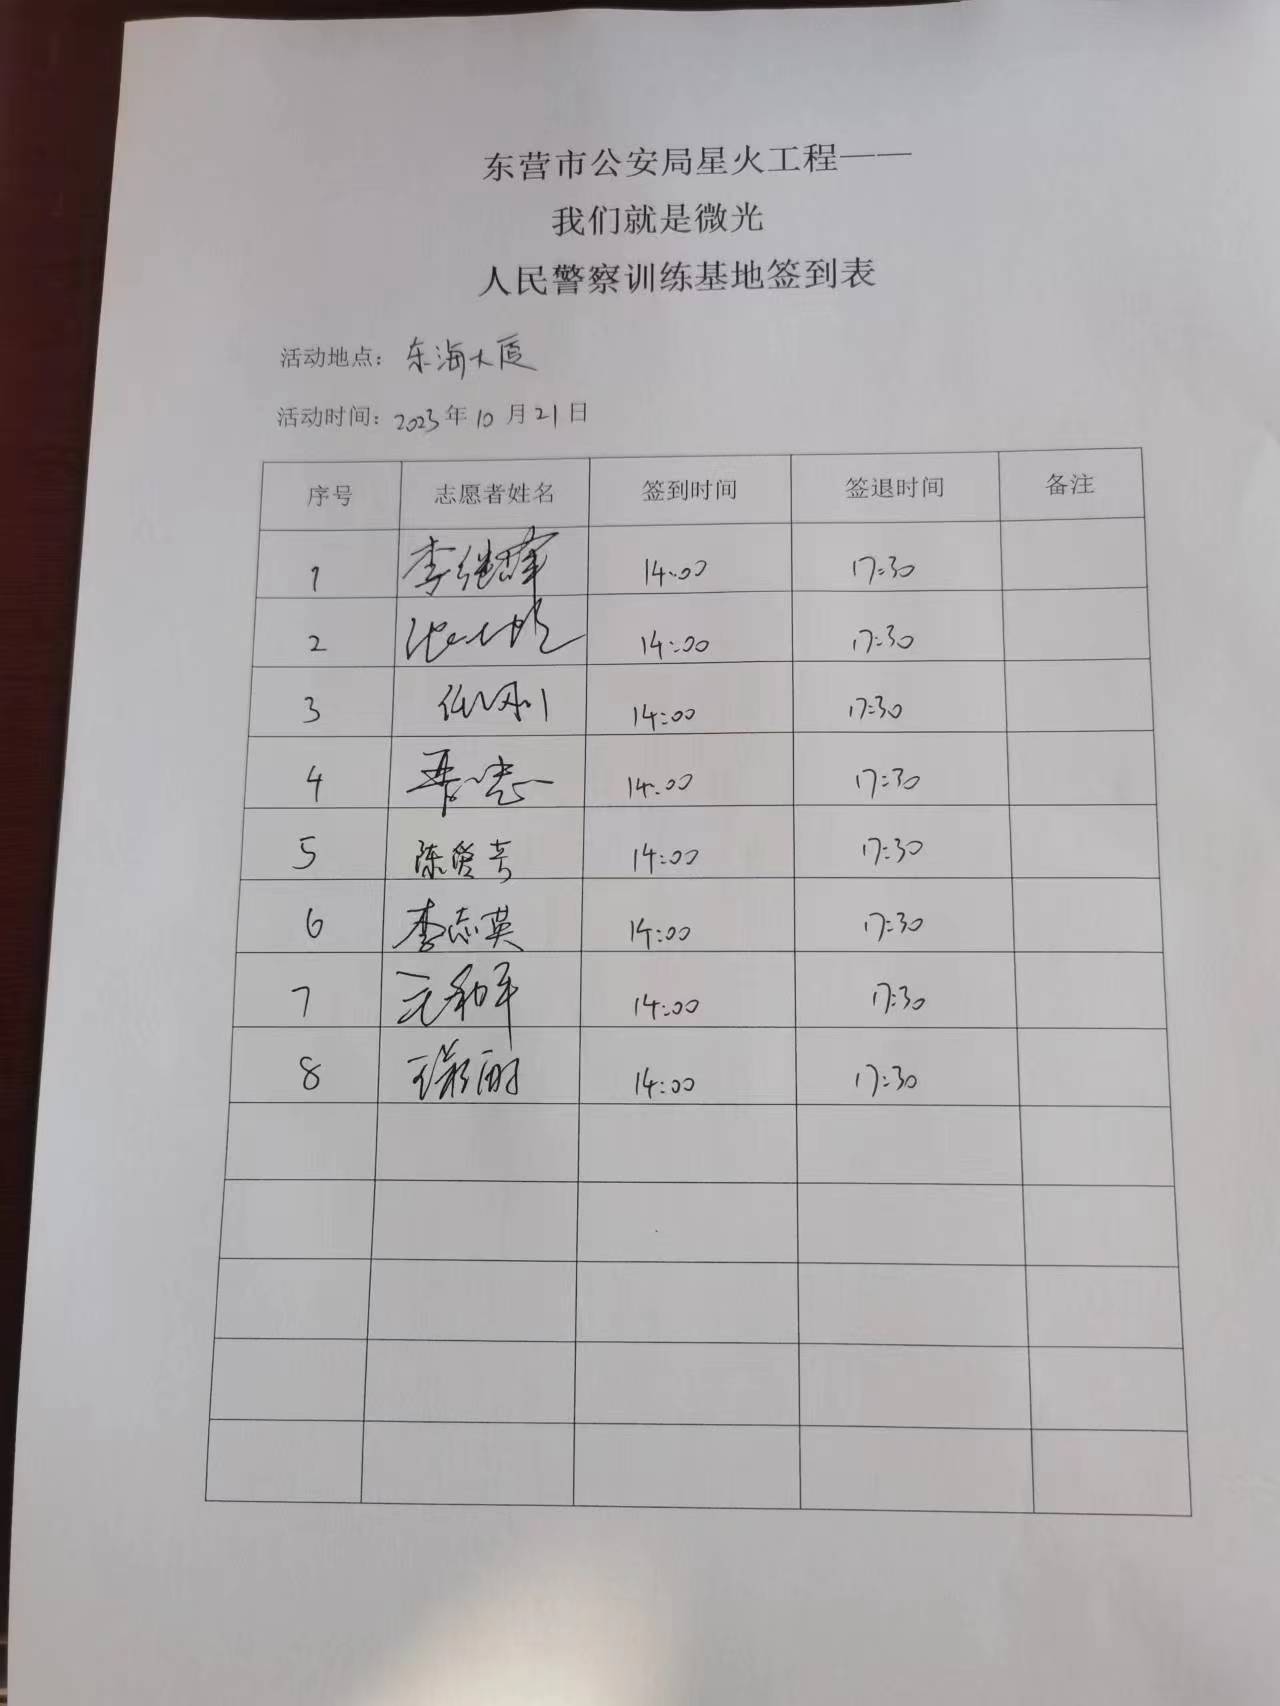 东营市公安局星火工程——
我们就是微光
人民警察训练基地签到表
活动地点：东海大厦
活动时间：2023年10月21日
序号 志愿者姓名 签到时间 签退时间 备注
1 李继峰 14:00 17:30
2 14:00 17:30
3 任刚 14:00 17:30
4 14:00 17:30
5 陈贤 14:00 17:30
6 李志英 14:00 17:30
7 元和平 14:00 17:30
8 王彩丽 14:00 17:30